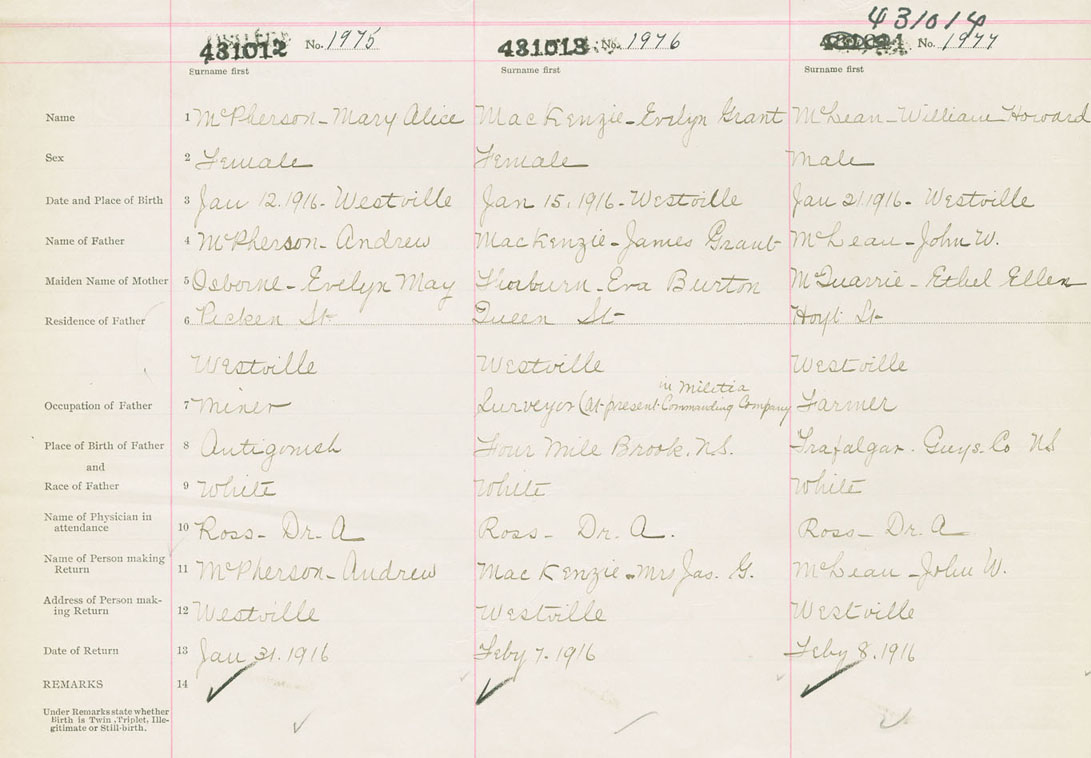 431014
431012 No. 1975 431013 No. 1976 No. 1977
Surname first Surname first Surname first
Name 1 McPherson - Mary Alice MacKenzie - Evelyn Grant McLean - William Howard
Sex 2 Female Female Male
Date and Place of Birth 3 Jan 12. 1916 - Westville Jan 15. 1916 - Westville Jan 21 1916 - Westville
Name of Father 4 McPherson - Andrew MacKenzie - James Grant McLean - John W.
Maiden Name of Mother 5 Osborne - Evelyn May Thorburn - Eva Burton McQuarrie - Ethel Ellen
Residence of Father 6 Picken St Queen St Hoyt St
Westville Westville Westville
in Militia
Occupation of Father 7 Miner Surveyor (at present Commanding Company Farmer
Place of Birth of Father 8 Antigonish Four Mile Brook. N.S. Trafalgar. Guys. Co NS
and
Race of Father 9 White White White
Name of Physician in
attendance 10 Ross - Dr. A Ross - Dr. A. Ross - Dr. A
Name of Person making
Return 11 McPherson - Andrew MacKenzie - Mrs Jas. G. McLean - John W.
Address of Person mak-
ing Return 12 Westville Westville Westville
Date of Return 13 Jan 31. 1916 Feby 7. 1916 Feby 8. 1916
REMARKS 14
Under Remarks state whether
Birth is Twin, Triplet, Ille-
gitimate or Still-birth.